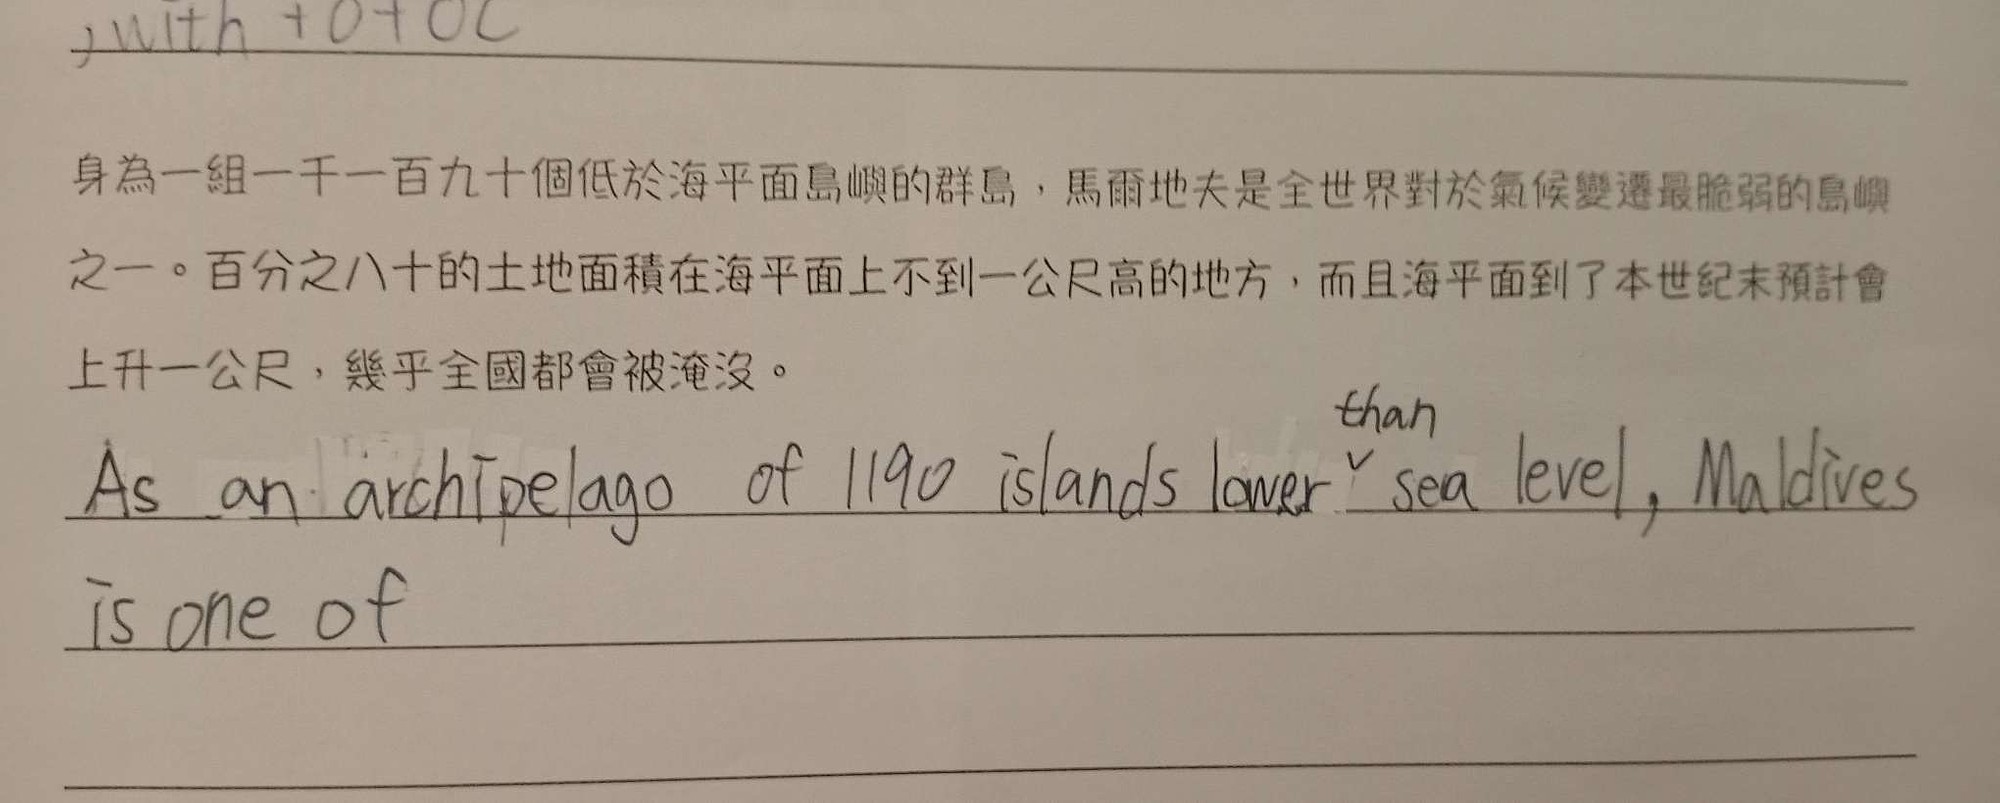 , with + O + OC
身為一組一千一百九十個低於海平面島嶼的群島，馬爾地夫是全世界對於氣候變遷最脆弱的島嶼
之一。百分之八十的土地面積在海平面上不到一公尺高的地方，而且海平面到了本世紀末預計會
上升一公尺，幾乎全國都會被淹沒。
than
As an archipelago of 1190 islands lower ˅ sea level, Maldives
is one of